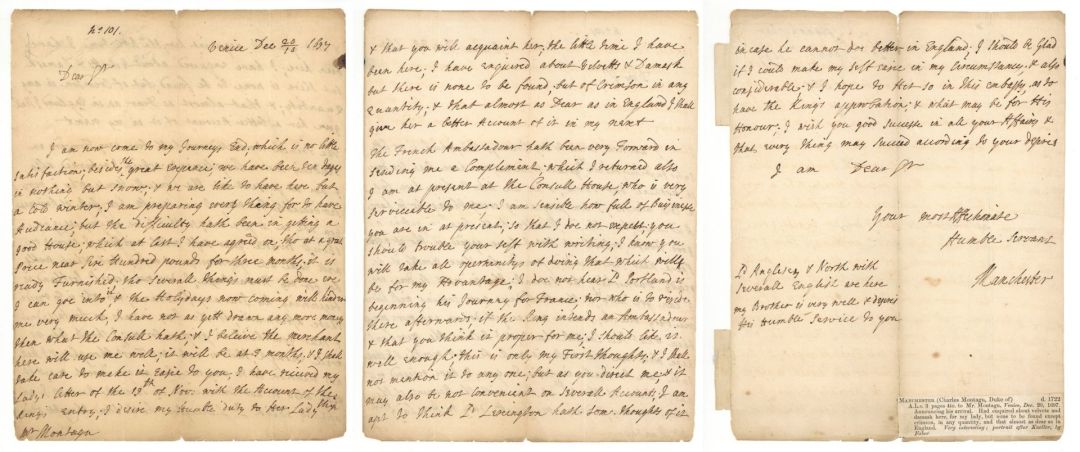 No 101.
Venice Dec 20/10 1697
Dear Sr
I am now come to my Journeys End, which is no little
satisfaction, besides the great expence; we have been ten dayes
in nothing but snow; & we are like to have here but
a cold winter, I am preparing every thing for to have
Audience; but the difficulty hath been in getting a
good House; which at last I have agreed on, tho at a great
price near five Hundred pounds for three months, it is
ready furnished. tho severall things must be done ere
I can goe into it & the Holydays now coming will hinder
me very much, I have not as yett drawn any more money
then what the Consull hath. & I beleive the merchant
here will use me well; it will be at 3 months, & I shall
take care to make it easie to you, I have received my
Ladys letter of the 19th of Nov. with the Account of the
Kings Entry, I desire my humble duty to Her Ladyship
Mr Montagu
& that you will acquaint her, the little time I have
been here; I have enquired about velvetts & Damask
but there is none to be found but of Crimson in any
quantity; & that almost as Dear as in England I shall
give her a better Account of it in my next
The French Ambassadour hath been very Forward in
sending me a Complement, which I returned also
I am at present at the Consull House, who is very
serviceable to me; I am sensible how full of Businesse
you are in at present, so that I doe not expect you
should trouble your self with writing, I know you
will take all opertunitys of doing that which will
be for my Advantage; I doe not hear Ld Portland is
beginning his Journey for France; nor who is to reside
there afterwards, if the King intends an Ambassadour
& that you think it proper for me; I should like it
well enough this is only my First thoughts, & I shall
not mention it to any one; but as you direct me, & it
may also be not convenient on severall Accounts, I am
apt to think Ld Lexington hath som thoughts of it
in case he cannot doe better in England; I should be Glad
if I could make my self easie in my Circumstances, & also
considerable; & I hope to Act so in this Embassy, as to
have the Kings approbation; & what may be for His
Honour; I wish you good Successe in all your Affairs &
that every thing may succeed according to your desires
I am Dear Sr
Your most Affectionate
Humble Servant
Manchester
Ld Anglesey & North with
severall English are here
my Brother is very well & desires
His Humble Service to you
MANCHESTER (Charles Montagu, Duke of) d. 1722
A.L.s. 3 pages 4to. to Mr. Montagu, Venice, Dec. 20, 1697.
Announcing his arrival. Had enquired about velvets and
damask here, for my lady, but none to be found except
crimson, in any quantity, and that almost as dear as in
England. Very interesting; portrait after Kneller, by
Faber